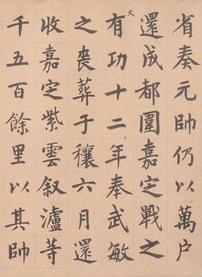 省奏元帥仍以萬户
還成都圍嘉定戰之
有功十二年奉武敏
之喪葬于穰六月還
收嘉定紫雲叙瀘等
千五百餘里以其帥